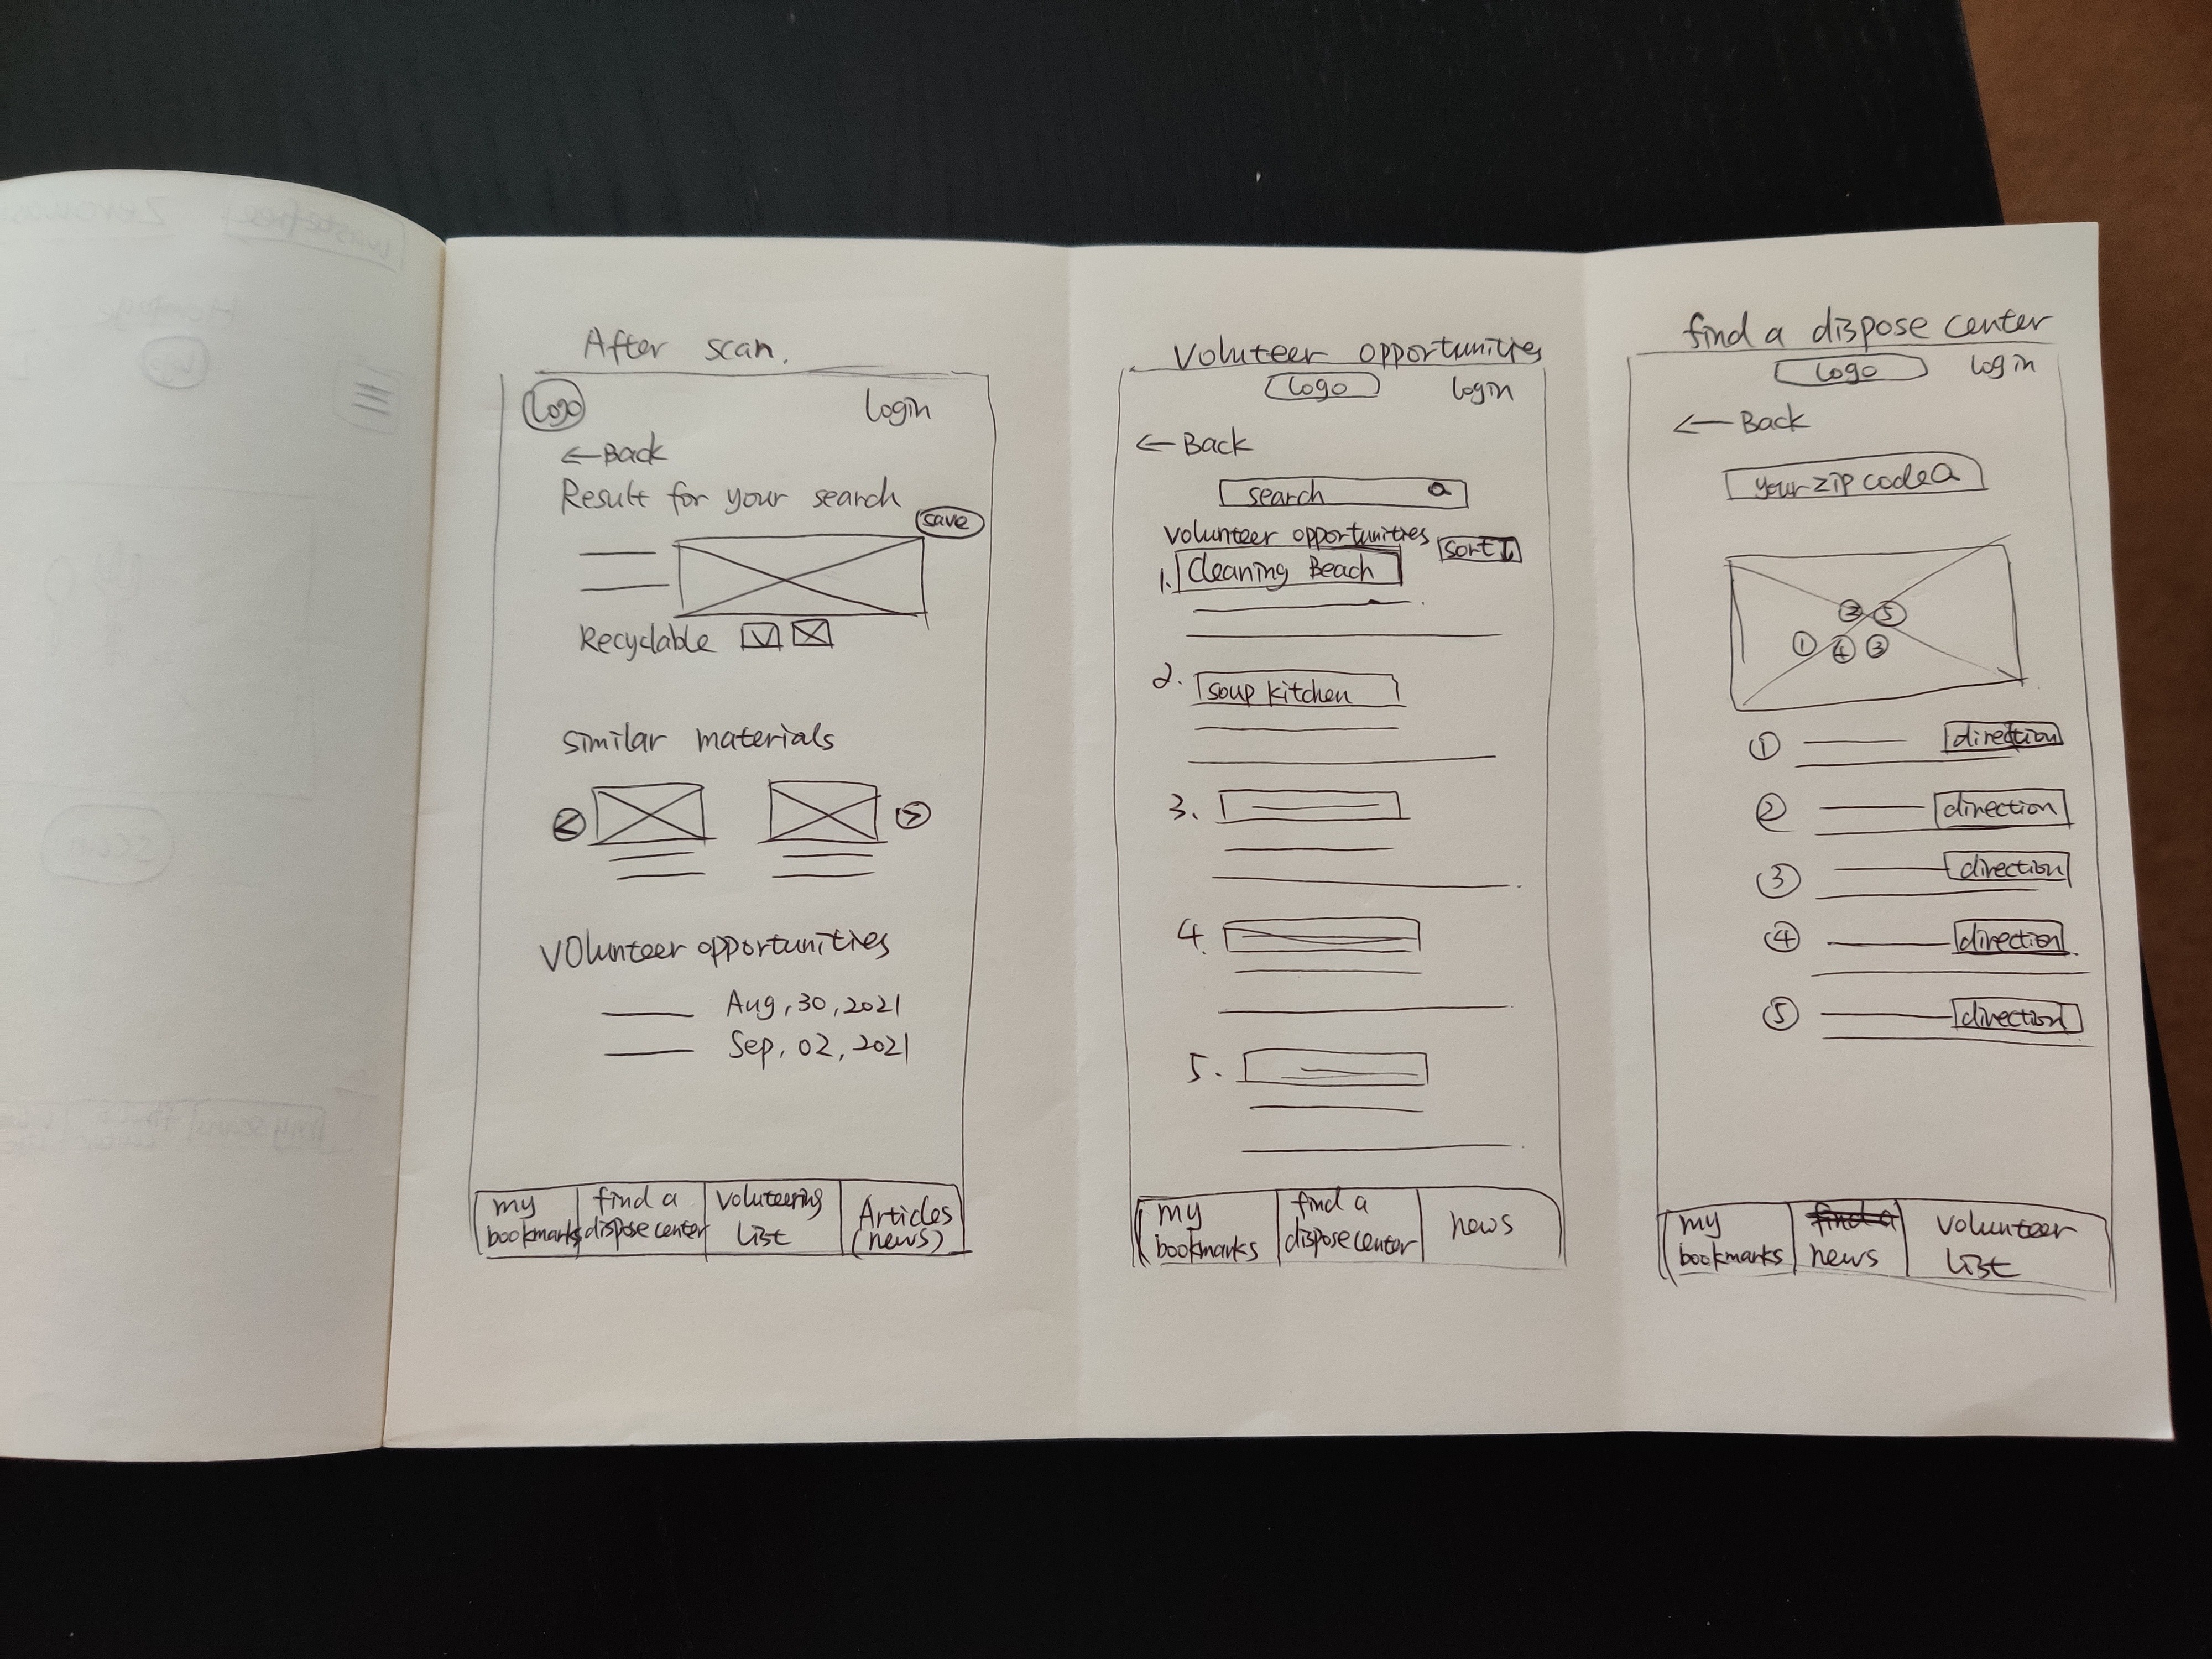 After scan.
Logo
Login
←Back
Result for your search
save
Recyclable
similar materials
<
>
Volunteer opportunities
Aug, 30, 2021
Sep, 02, 2021
my
bookmarks
find a
dispose center
Voluteering
List
Articles
(news)
Voluteer opportunities
Logo
Login
←Back
search
volunteer opportunities
sort
1. Cleaning Beach
2. soup kitchen
3.
4.
5.
my
bookmarks
find a
dispose center
news
find a dispose center
Logo
Login
←Back
your zip code
2 5
1 4 3
1 direction
2 direction
3 direction
4 direction
5 direction
my
bookmarks
find a
news
volunteer
List
wastefree
Homepage
logo
scan